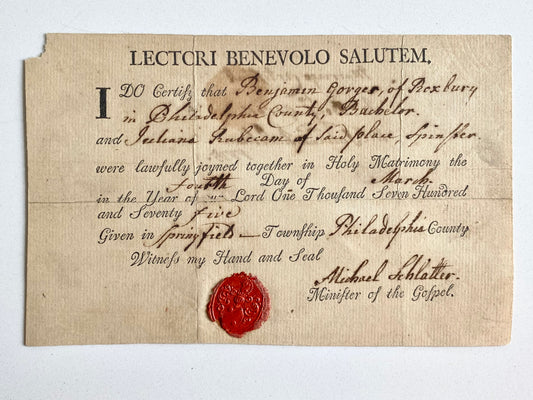 LECTORI BENEVOLO SALUTEM,
I DO Certify that Benjamin Gorger, of Roxbury
in Philadelphia County, Bachelor.
and Juliana Rubecam of said place Spinster
were lawfully joyned together in Holy Matrimony the
fourth Day of March
in the Year of our Lord One Thousand Seven Hundred
and Seventy five
Given in Springfield Township Philadelphia County
Witness my Hand and Seal
Michael Schlatter.
Minister of the Gospel.